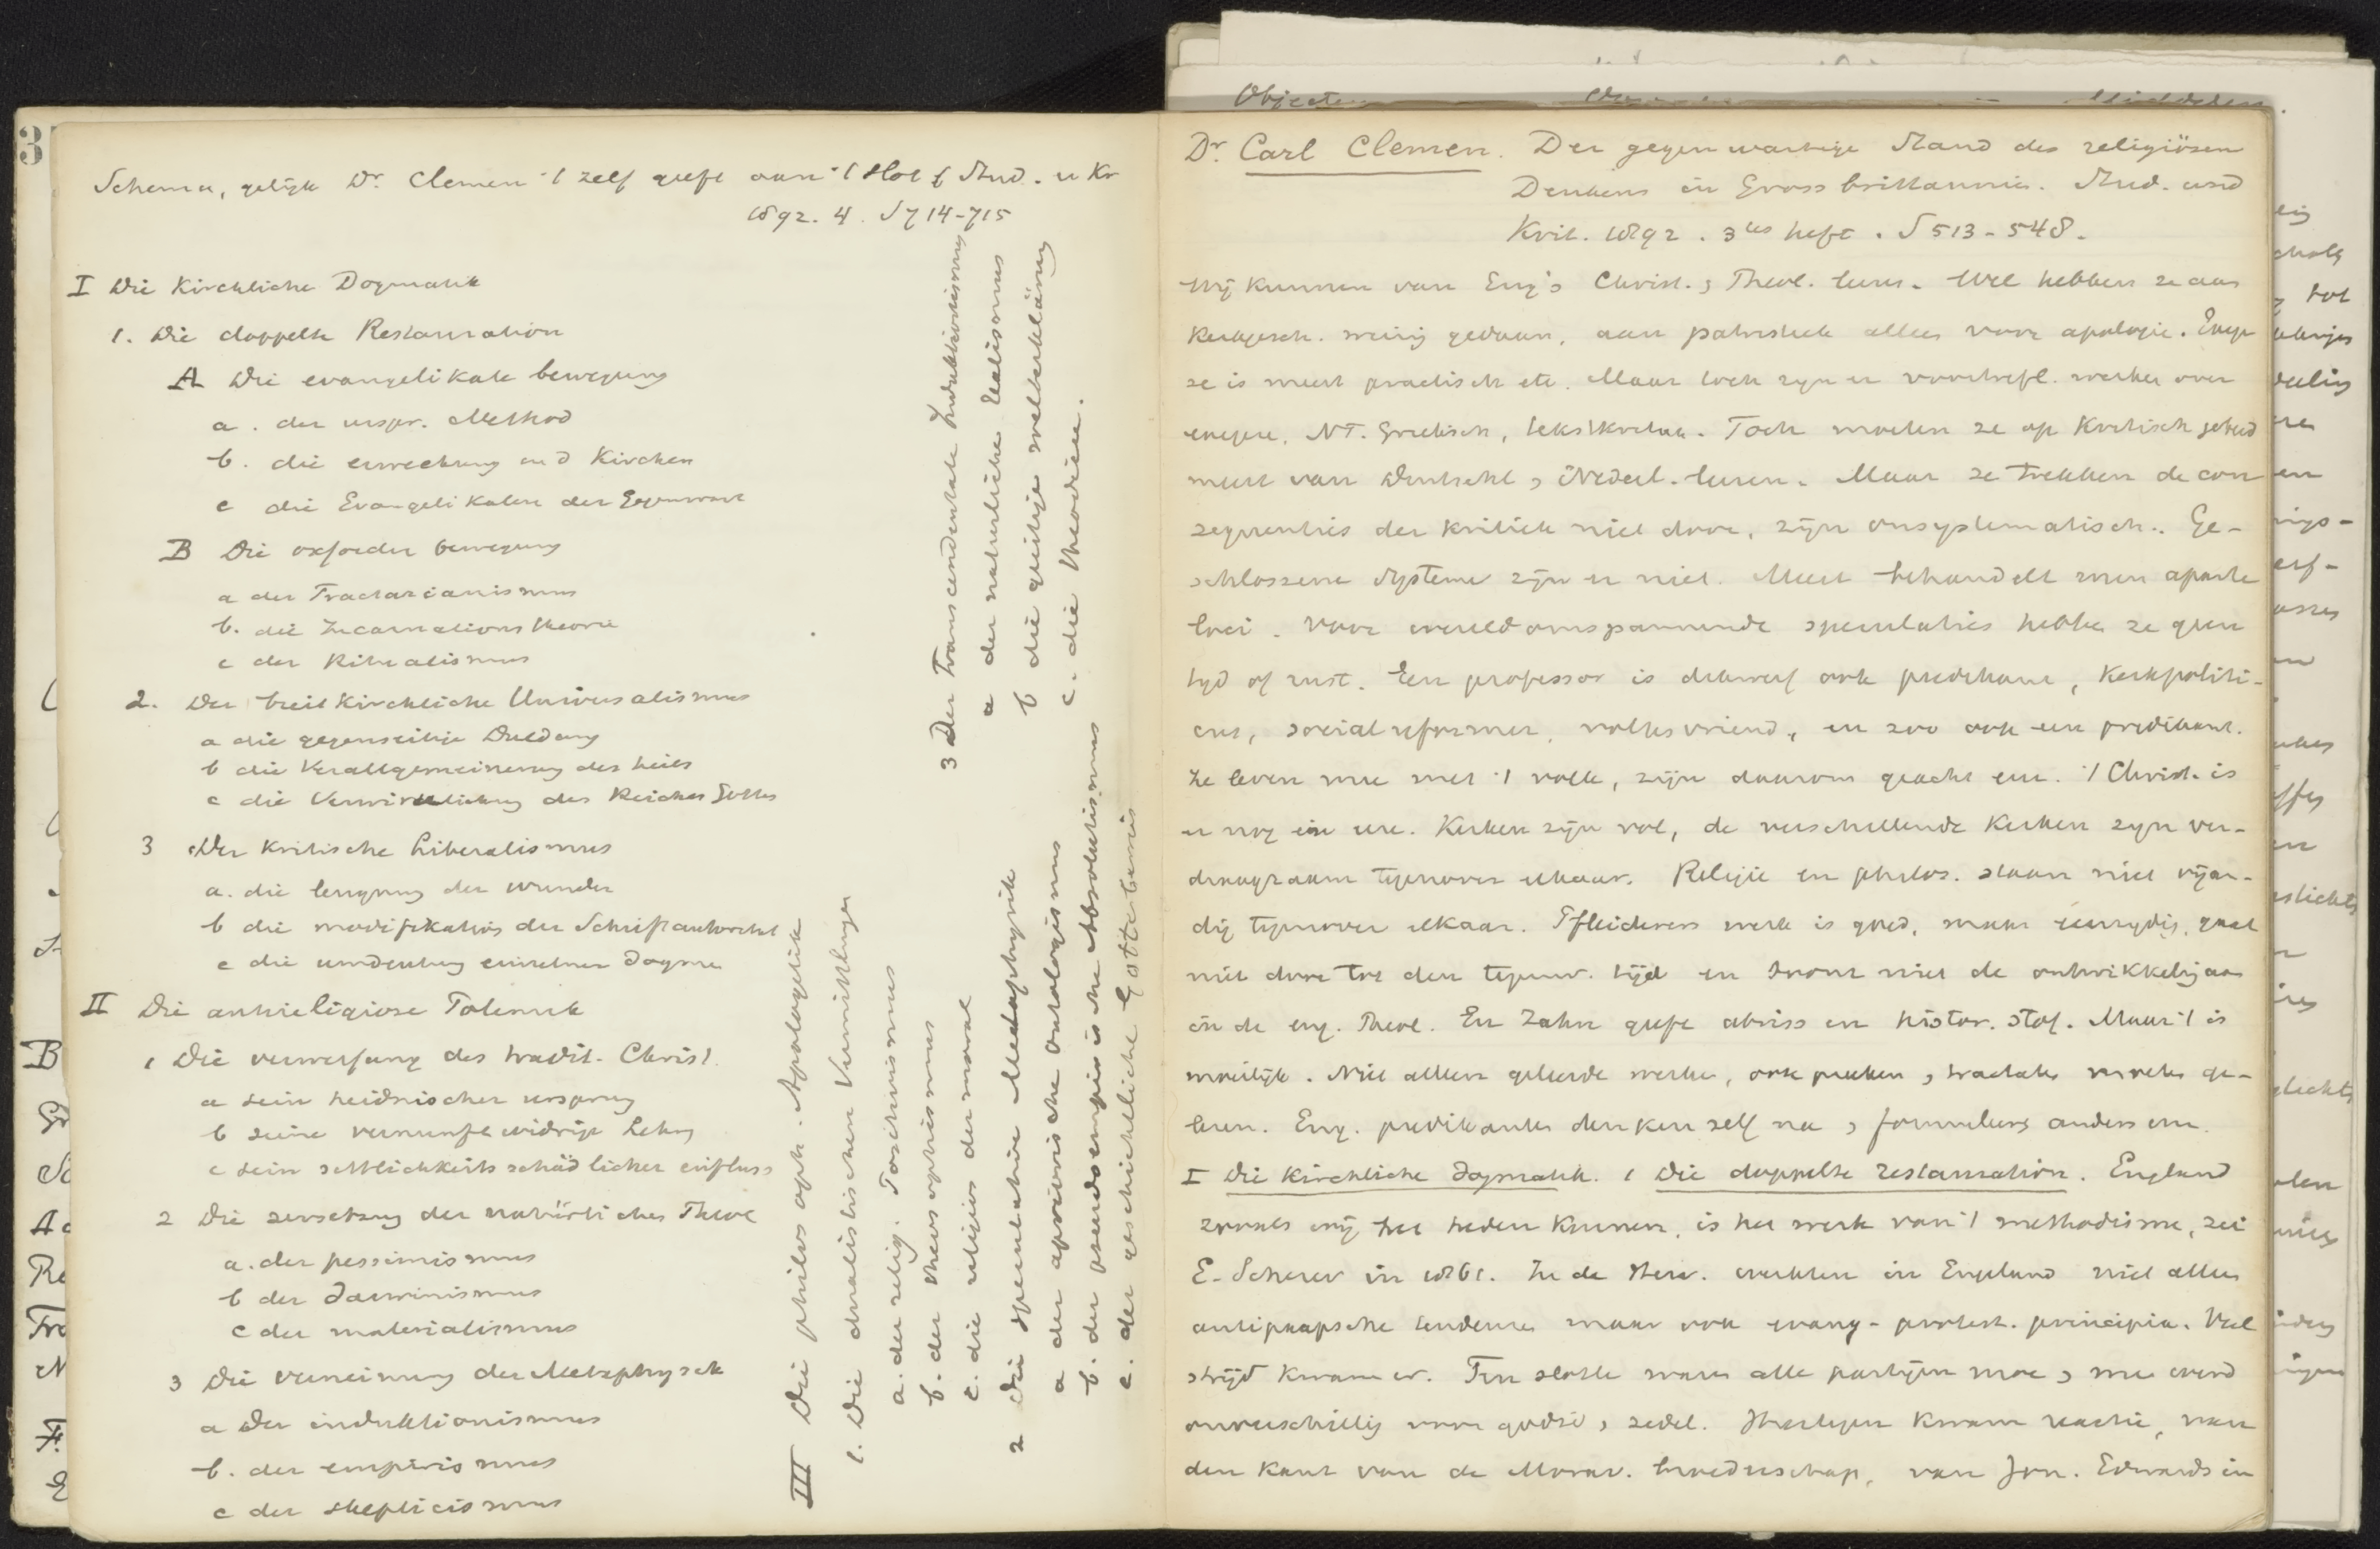 Schema, gelijk Dr. Clemen 't zelf geeft aan 't slot v Stud. u Kr
1892. 4. S 714-715
I Die Kirchliche Dogmatik
1. Die doppelte Restauration
A Die evangelikale bewegung
a. der urspr. Method
b. die erweckung in d Kirchen
c die Evangelikalen der Gegenwart
B Die oxforder bewegung
a der Tractarianismus
b. die Incarnationstheorie
c der Ritualismus
2. Der breitkirchliche Universalismus
a die gegenseitige Duldung
b die Verallgemeinerung des heils
c die Verwirklichung des Reiches Gottes
3 Der kritische Liberalismus
a. die leugnung der wunder
b die modifikation der Schriftautorität
c die umdeutung einzelner dogmen
II Die antireligiose Polemik
1 Die verwerfung des tradit. Christ.
a sein heidnischer ursprung
b seine vernunftwidrige Lehre
c sein sittlichkeitsschädlicher einfluss
2 Die zersetzung der natürlichen Theol
a. der pessimismus
b der darwinismus
c der materialismus
3 Die verneinung der Metaphysik
a der induktionismus
b. der empirismus
c der skepticismus
III Die philosoph. Apologetik
1. Die dualistischen Vermittlungen
a. der relig. Positivismus
b. der theosophismus
c. die religion der moral
2 Die spekulative Metaphysik
a der aprioristische Ontologismus
b. der pseudoempirische Absolutismus
c. der geschichtliche Gottesbeweis
3 Der Transcendentale Induktionismus
a der natürliche Realismus
b die geistige welterklärung
c. die theodicee.
Objecten Middelen
Dr. Carl Clemen. Der gegenwartige Stand des religiösen
Denkens in Grossbrittannien. Stud. und
Krit. 1892. 3tes heft. S 513-548.
Wij kunnen van Eng's Christ. & Theol. leeren. Wel hebben ze aan
Kerkgesch. weinig gedaan, aan patristiek alles voor apologie. Exege
se is meest practisch etc. Maar toch zijn er voortrefl. werken over
exegese, NT. Grieksch, tekstkritiek. Toch moeten ze op Kritisch gebied
meest van Duitschl & Nederl. leeren. Maar ze trekken de con
zequenties der kritiek niet door, zijn onsystematisch. Ge-
schlossene Systeme zijn er niet. Meest behandelt men aparte
loci. Voor wereldomspannende speculaties hebben ze geen
tijd of rust. Een professor is dikwerf ook predikant, Kerkpoliti-
cus, sociaal reformer, volksvriend, en zoo ook een predikant.
Ze leven mee met 't volk, zijn daarom geacht enz. 't Christ. is
er nog in ere. Kerken zijn vol, de verschillende Kerken zijn ver-
draagzaam tegenover elkaar. Religie en philos. staan niet vijan-
dig tegenover elkaar. Pfleiderers werk is goed, maar eenzijdig, gaat
niet door tot den tegenw. tijd en toont niet de ontwikkeling aan
in de eng. Theol. En Zahn geeft abriss en histor. stof. Maar 't is
moeilijk. Niet alleen geleerde werken, ook preeken & tractaten moeten ge-
lezen. Eng. predikanten denken zelf na & formuleeren anders enz.
I Die Kirchliche dogmatik. 1 Die doppelte restauration. England
zooals wij het heden kennen, is het werk van 't methodisme, zei
E. Scherer in 1861. In de Herv. werkten in England niet alleen
antipaapsche tendenzen maar ook evang-protest. principia. Veel
strijd kwam er. Ten slotte waren alle partijen moe & men werd
onverschillig voor godsd & zedel. Hiertegen kwam reactie, van
den kant van de Morav. broederschap, van Jon. Edwards in